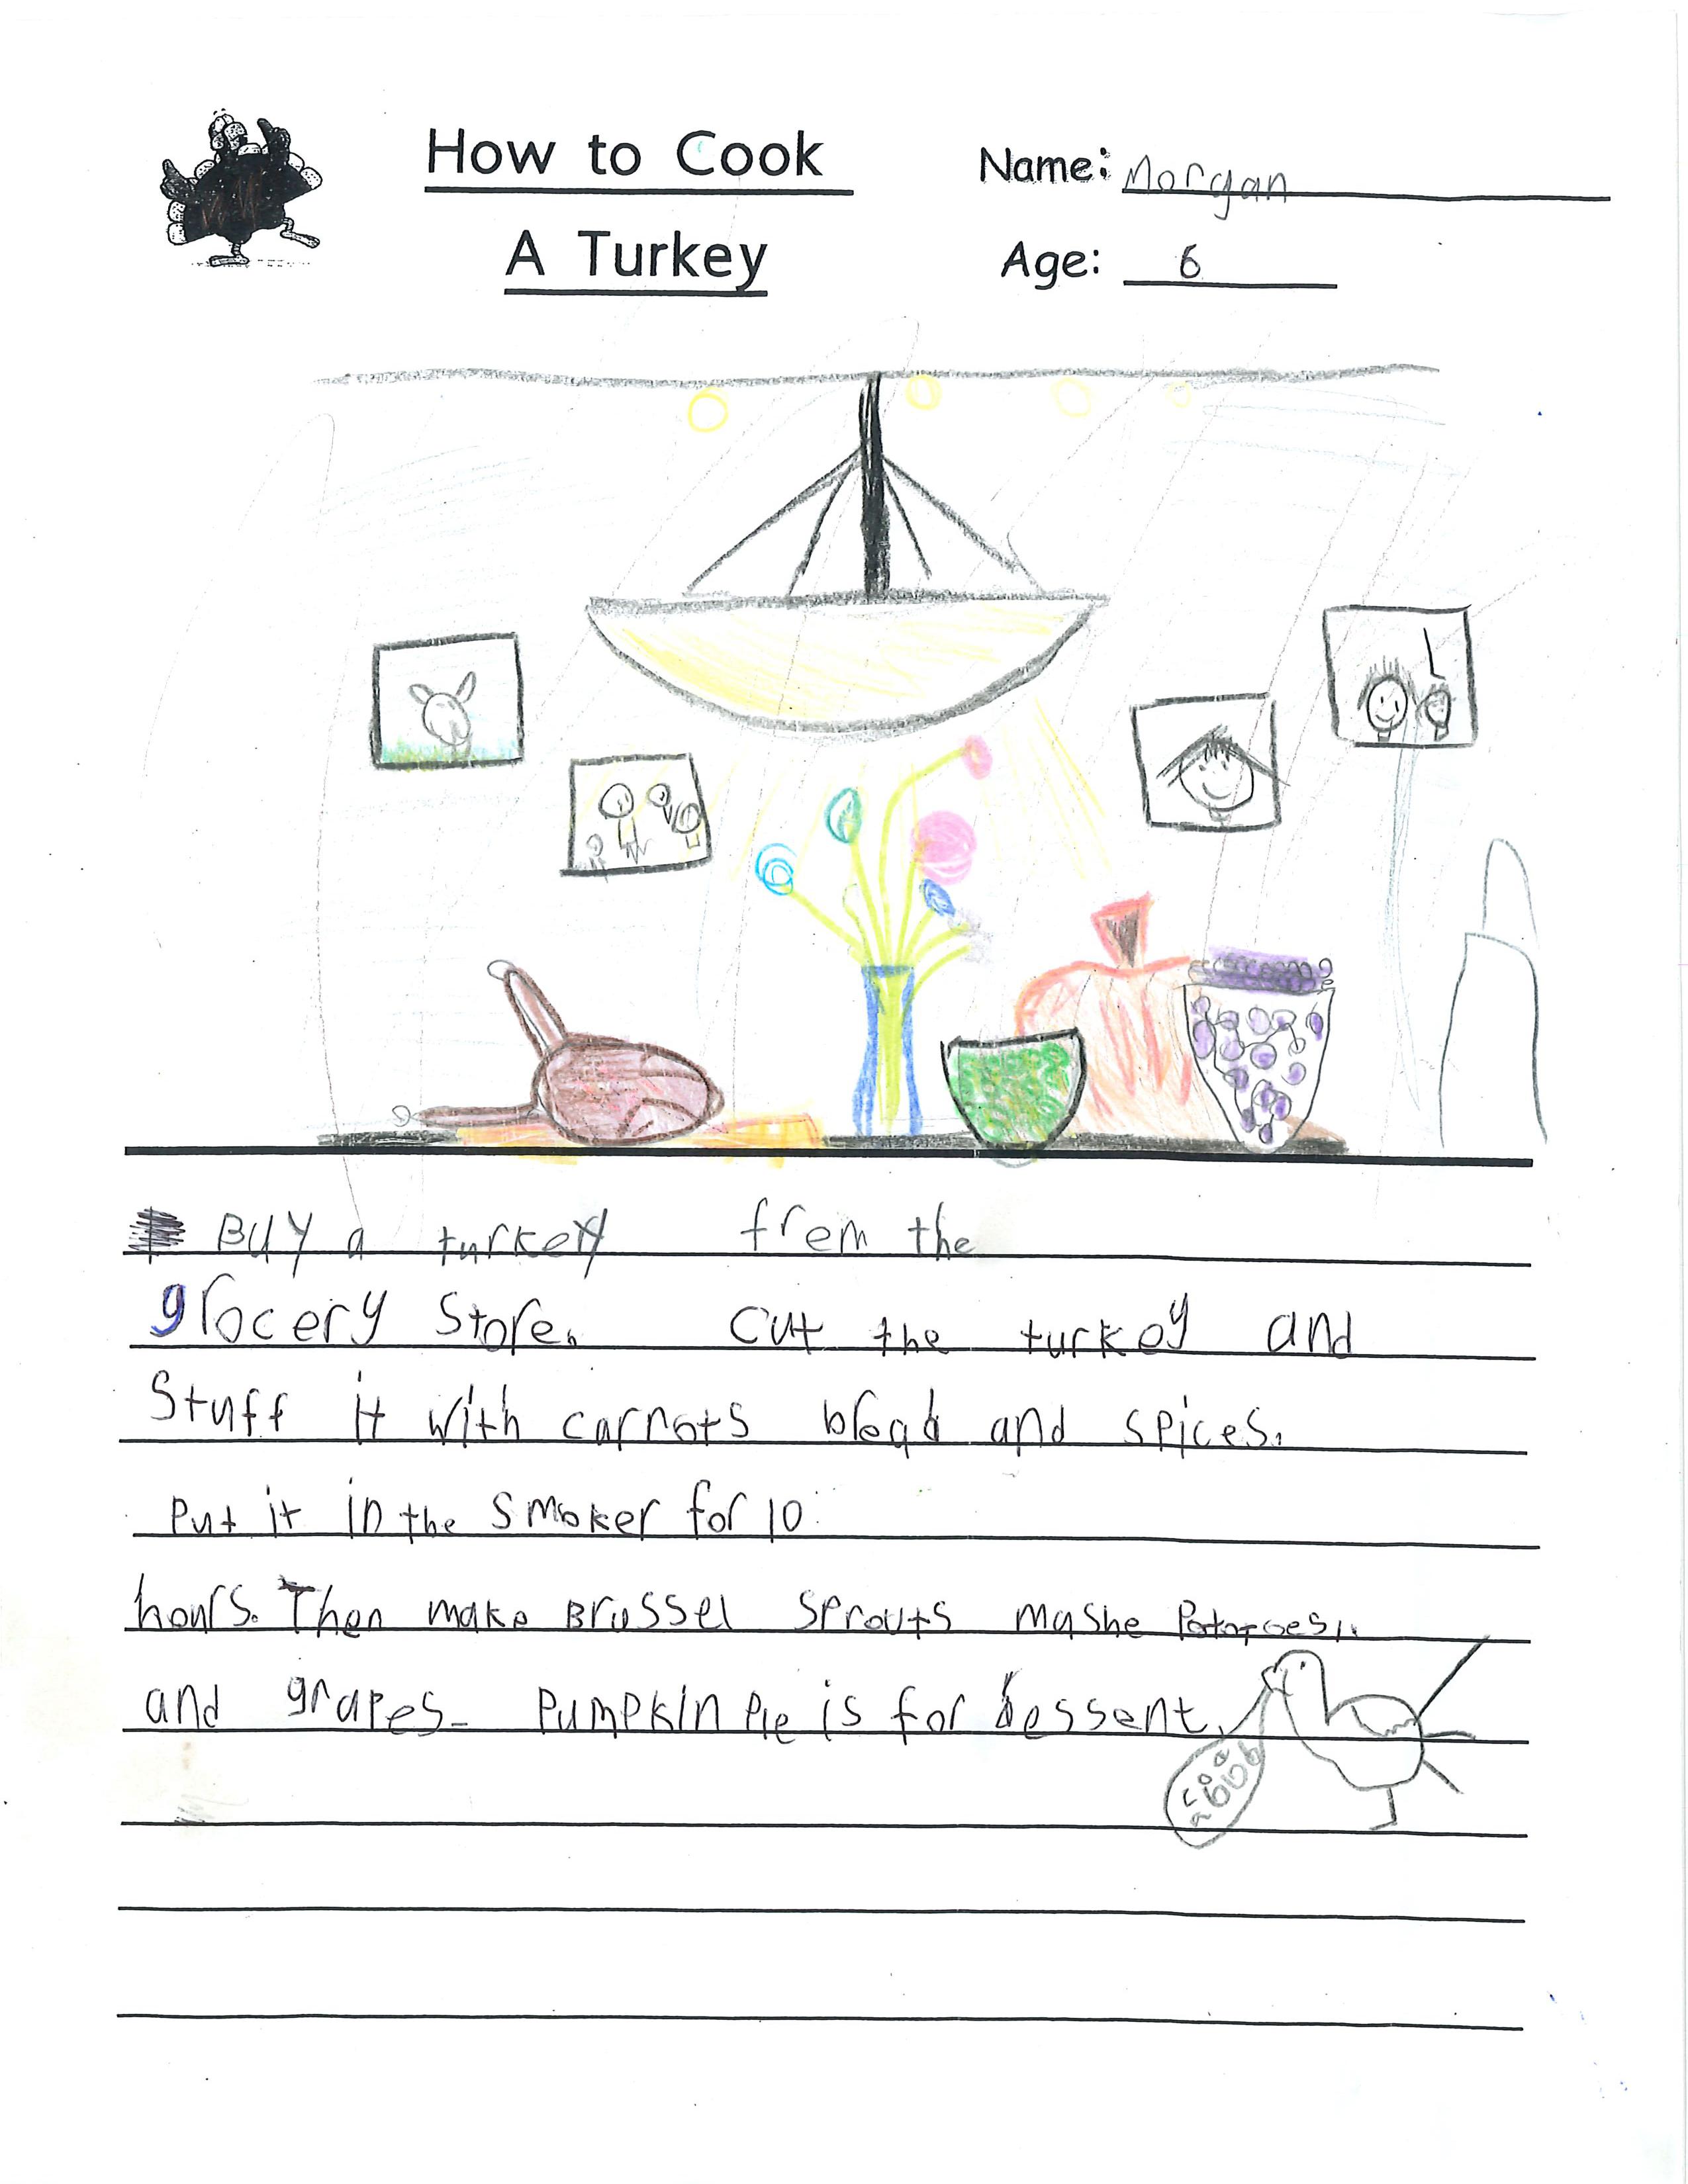 How to Cook
A Turkey
Name: Morgan
Age: 6
Buy a turkey frem the
grocery store. cut the turkey and
Stuff it with carrots bread and spices.
Put it in the smoker for 10
hours. Then make Brussel sprouts mashe Potatoes,
and grapes. Pumpkin Pie is for dessent.